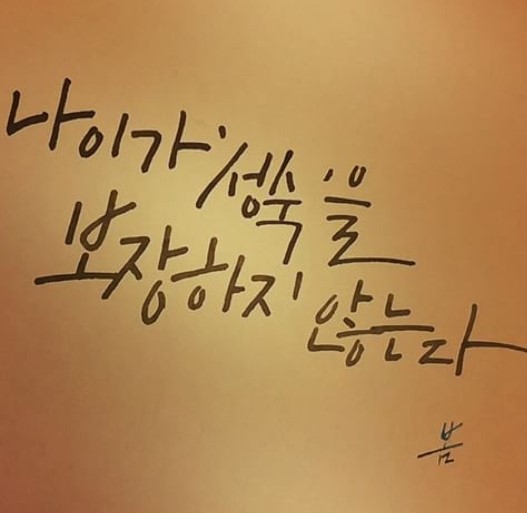 나이가 '성숙'을
보장하지 않는다
봄